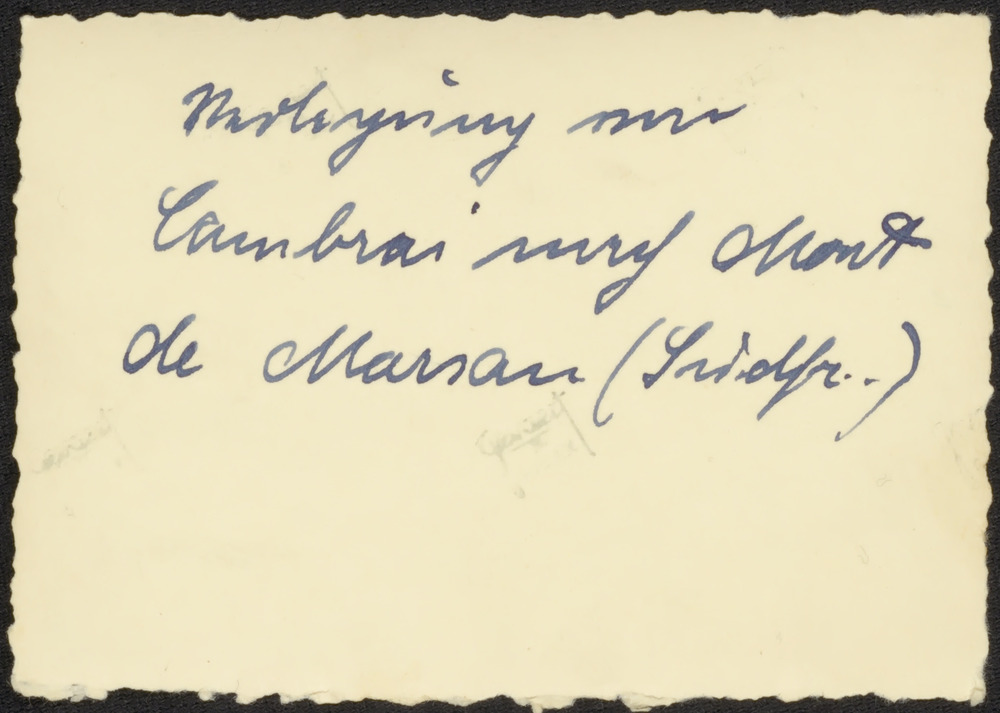 Verlegung von
Cambrai nach Mont
de Marsan (Südfr..)